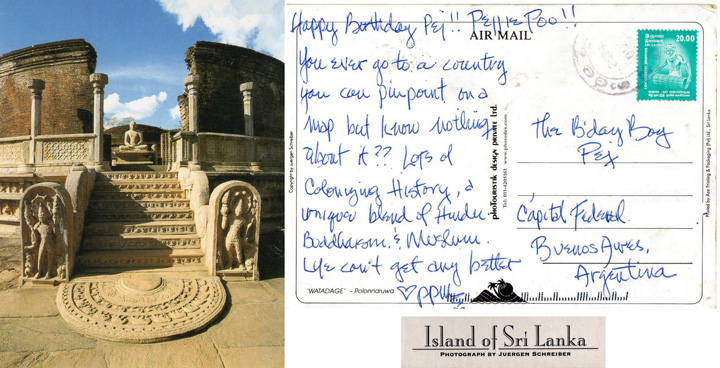 Happy Birthday Pej!! Pejjie Poo!!
AIR MAIL
You ever go to a country
you can pinpoint on a
map but know nothing
about it?? Lots of
Colonizing History, a
unique blend of Hindu
Buddhism, & Muslim.
Life can't get any better
"WATADAGE" – Polonnaruwa
Copyright by Juergen Schreiber
photouristik design private ltd.
www.photouristik.com
20.00
SRI LANKA
The B'day Boy
Pej
Capital Federal
Buenos Aires,
Argentina
Printed by Ace Printing & Packaging (Pvt) Ltd., Sri Lanka
Island of Sri Lanka
PHOTOGRAPH BY JUERGEN SCHREIBER